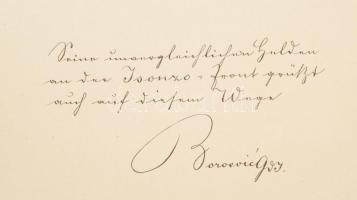 Seine unvergleichlichen Helden
an der Isonzo-Front grüßt
auch auf diesem Wege
Boroević